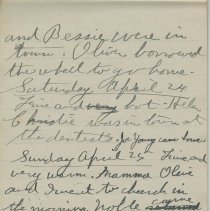 and Bessie were in
town. Olive borrowed
the wheel to go home.
Saturday April 24
Fine and hot. Hilda
Christie was in town at
the dentists. Joe Young came home
Sunday April 25 Fine and
very warm. Mamma Olive
and I went to church in
the morning Noble came